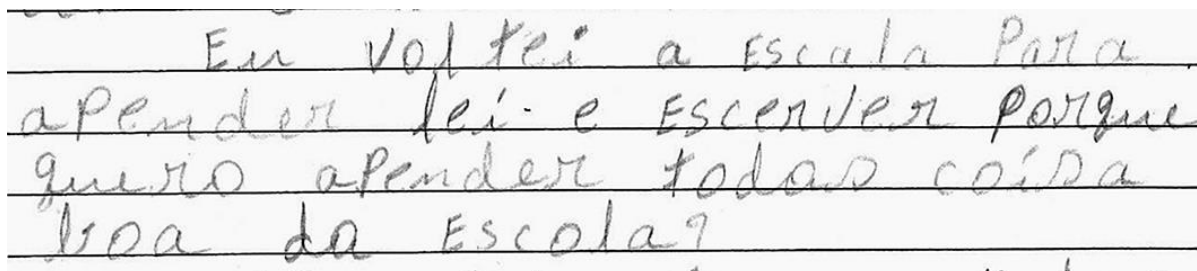 Eu voltei a Escala Para
aPender lei e EscerVer Porque
quero aPender todas coisa
boa da Escola?